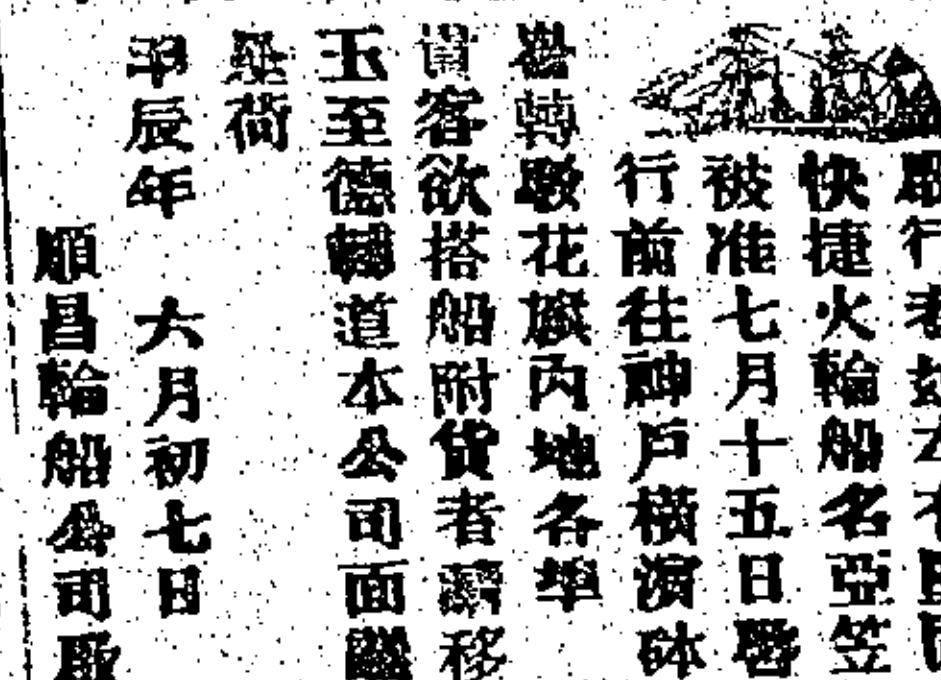 啟行者
快捷火輪船名亞笠
被准七月十五日啓
行前往神戶橫濱砵
崙轉駁花旗內地各埠
貴客欲搭船附貨者請移
玉至德輔道本公司面議
是荷
年 六月初七日
順昌輪船公司啟